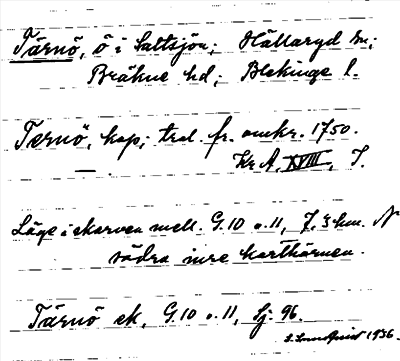 Tärnö, ö i Saltsjön; Hällaryd sn;
Bräkne hd; Blekinge l.
Ternö, kop; trol. fr. omkr. 1750.
Kr. A, XVIII, 7.
Läge i skarven mell. G. 10 o. 11, 7,3 km. N
södra inre kartkärnen.
Tärnö ek, G. 10 o. 11, Sj. 96.
1936.